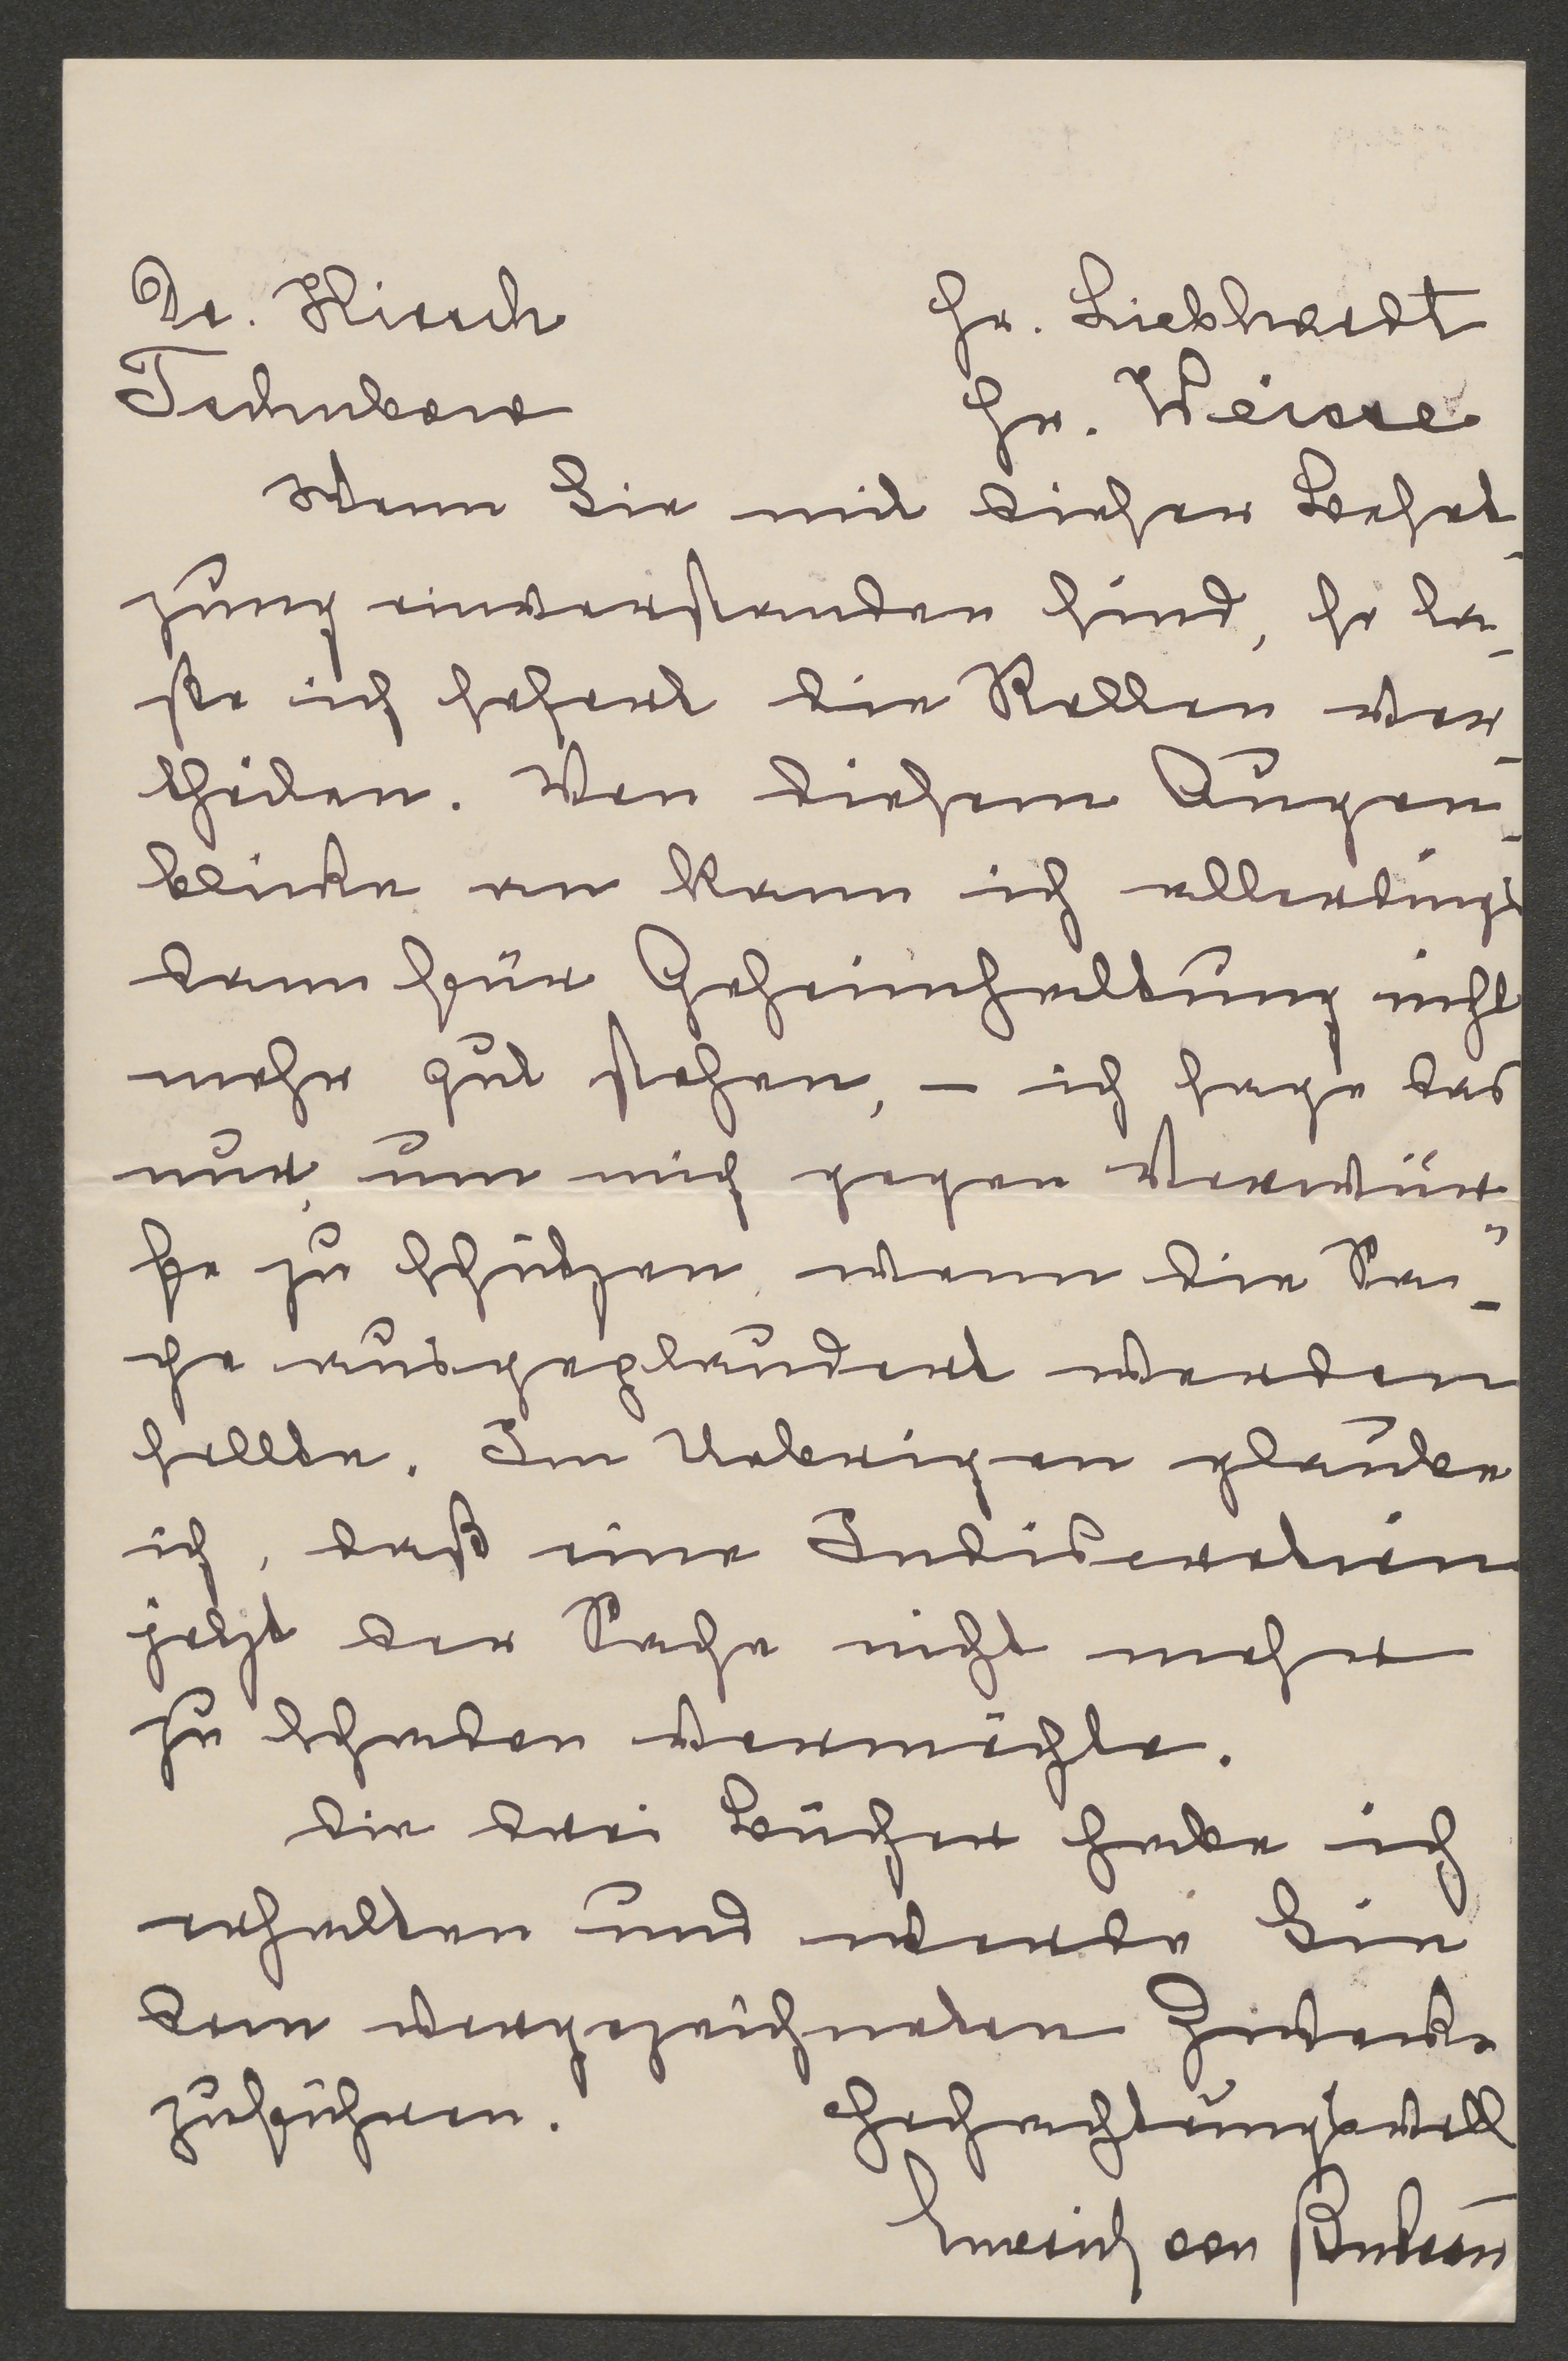 Dr. Hirsch Hr. Liebhardt
Tschukow Hr. Weisse
Wenn Sie mit dieser Beset-
zung einverstanden sind, so la-
sse ich sofort die Rollen ver-
theilen. Von diesem Augen-
blicke an kann ich allerdings
dann für Geheimhaltung nicht
mehr gut stehen, – ich sage das
nur, um mich gegen Vorwür-
fe zu schützen, wenn die Sa-
che ausgeplaudert werden
sollte. Im Uebrigen glaube
ich, daß eine Indiscretion
jetzt der Sache nicht mehr
zu schaden vermöchte.
Die drei Bücher habe ich
erhalten und werde Sie
dem vorgezeichneten Zwecke
zuführen. Hochachtungsvoll
Emerich von Bukovics